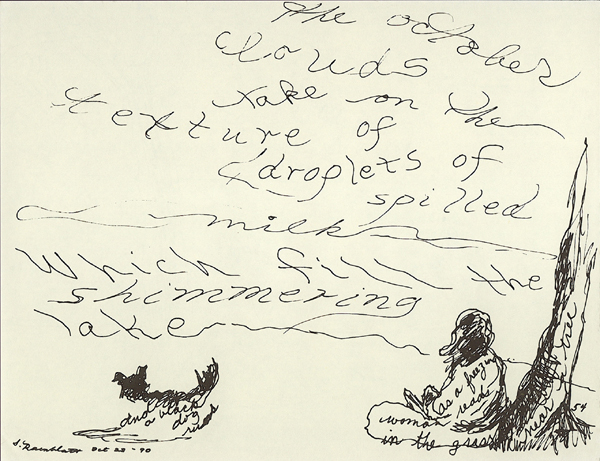 the october
clouds
take on the
texture of
droplets of
spilled
milk
which fill the
shimmering
lake
as a freezing
woman reads
in the grass
near a tree
and a black
dog
runs
54
Oct 22 - 90